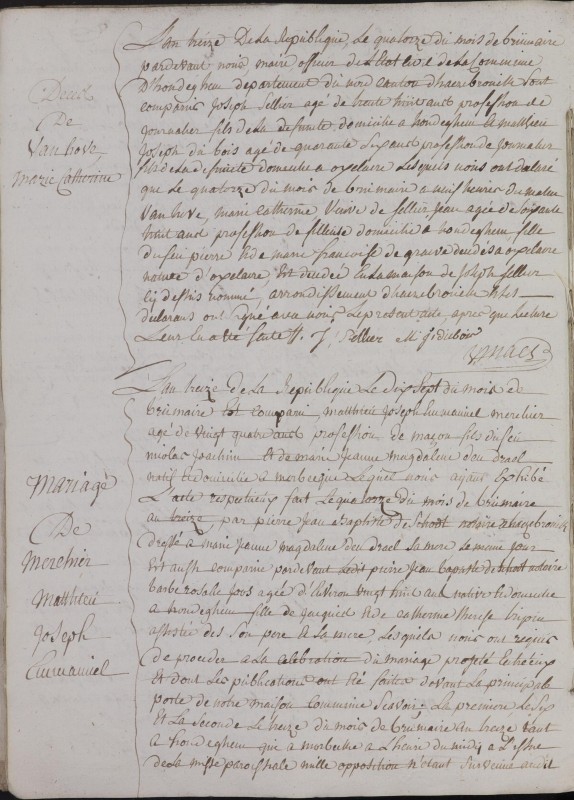 L'an treize De La Republique, Le quatorze du mois de brumaire
pardevant nous maire officer de La Commune
D'hondeghem departement du nord canton d'haezebrouck sont
comparus Joseph Sellier agé de trente huit ans profession de
journalier fils de la defunte, domicilié a hondeghem Et matthieu
Joseph du bois agé de quarante Six ans profession de journalier
fils de La defunte domicilié a oxelaere Lesquels nous ont declaré
que Le quatorze du mois de brumaire a neuf heures du matin
Van hove, marie Catherine Veuve de Sellier Jean agée de soixante
huit ans profession de fileuse domicilié a hondeghem fille
du feu pierre Et de marie françoise de graeve decedés a oxelaere
native d'oxelaere, Est decedée En La maison de Joseph Sellier
cy dessus nommé, arrondissement d'haezebrouck Et les
declarans ont signé avec nous Le present acte, apres que Lecture
Leur En a été faite J. Sellier M. J. dubois
Deces
De
Van hove
Marie Catherine
L'an treize de La Republique Le dix Sept du mois de
brumaire Est comparu matthieu Joseph Emmanuel merchier
agé de vingt quatre ans profession de maçon fils du feu
nicolas Joachim Et de marie Jeanne magdalene
natif Et domicilié a morbecque Lequel nous ayant Exhibé
L'acte respectueux fait Le quatorze du mois de brumaire
an treize, par pierre Jean Baptiste de Schodt notaire a haezebrouck
dressé a marie Jeanne magdalene La mere Le meme jour
Est aussi comparue pardevant Ledit pierre Jean baptiste de Schodt notaire
barbe rosalie agée d'Environ vingt huit ans native Et domicilié
a hondeghem fille de Jacques Et de Catherine therese
assistée de Son pere & La mere, Lesquels nous ont requis
de proceder a La celebration du mariage projeté Entr'Eux
Et dont Les publications ont été faites devant La principale
porte de notre maison Commune Scavoir, La premiere Le Six
Et La Seconde Le treize du mois de brumaire an treize tant
a hondeghem que a morbecke a L'heure du midi a L'issue
de La messe paroissiale nulle opposition n'etant survenue audit
Mariage
De
Merchier
Matthieu
Joseph
Emmanuel